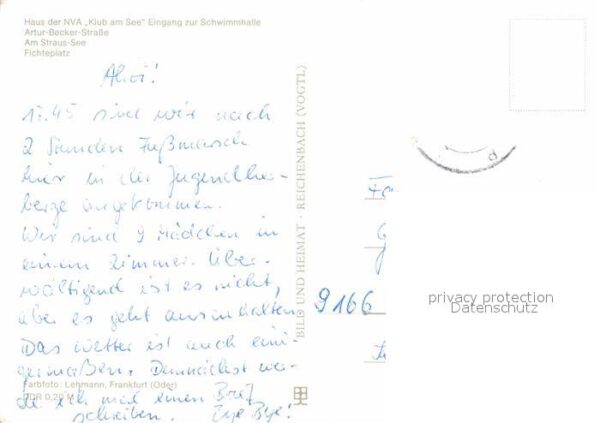 Haus der NVA „Klub am See" Eingang zur Schwimmhalle
Artur-Becker-Straße
Am Straus-See
Fichteplatz
Ahoi!
17.45 sind wir nach
2 Stunden Fußmarsch
hier in der Jugendher-
berge angekommen.
Wir sind 9 Mädchen in
einem Zimmer. Über-
wältigend ist es nicht,
aber es geht auszuhalten
Das Wetter ist auch eini-
germaßen. Demnächst wer-
de ich mal einen Brief
schreiben. Bye Bye!
Farbfoto: Lehmann, Frankfurt (Oder)
DDR 0,20 M
BILD UND HEIMAT · REICHENBACH (VOGTL)
9166
privacy protection
Datenschutz